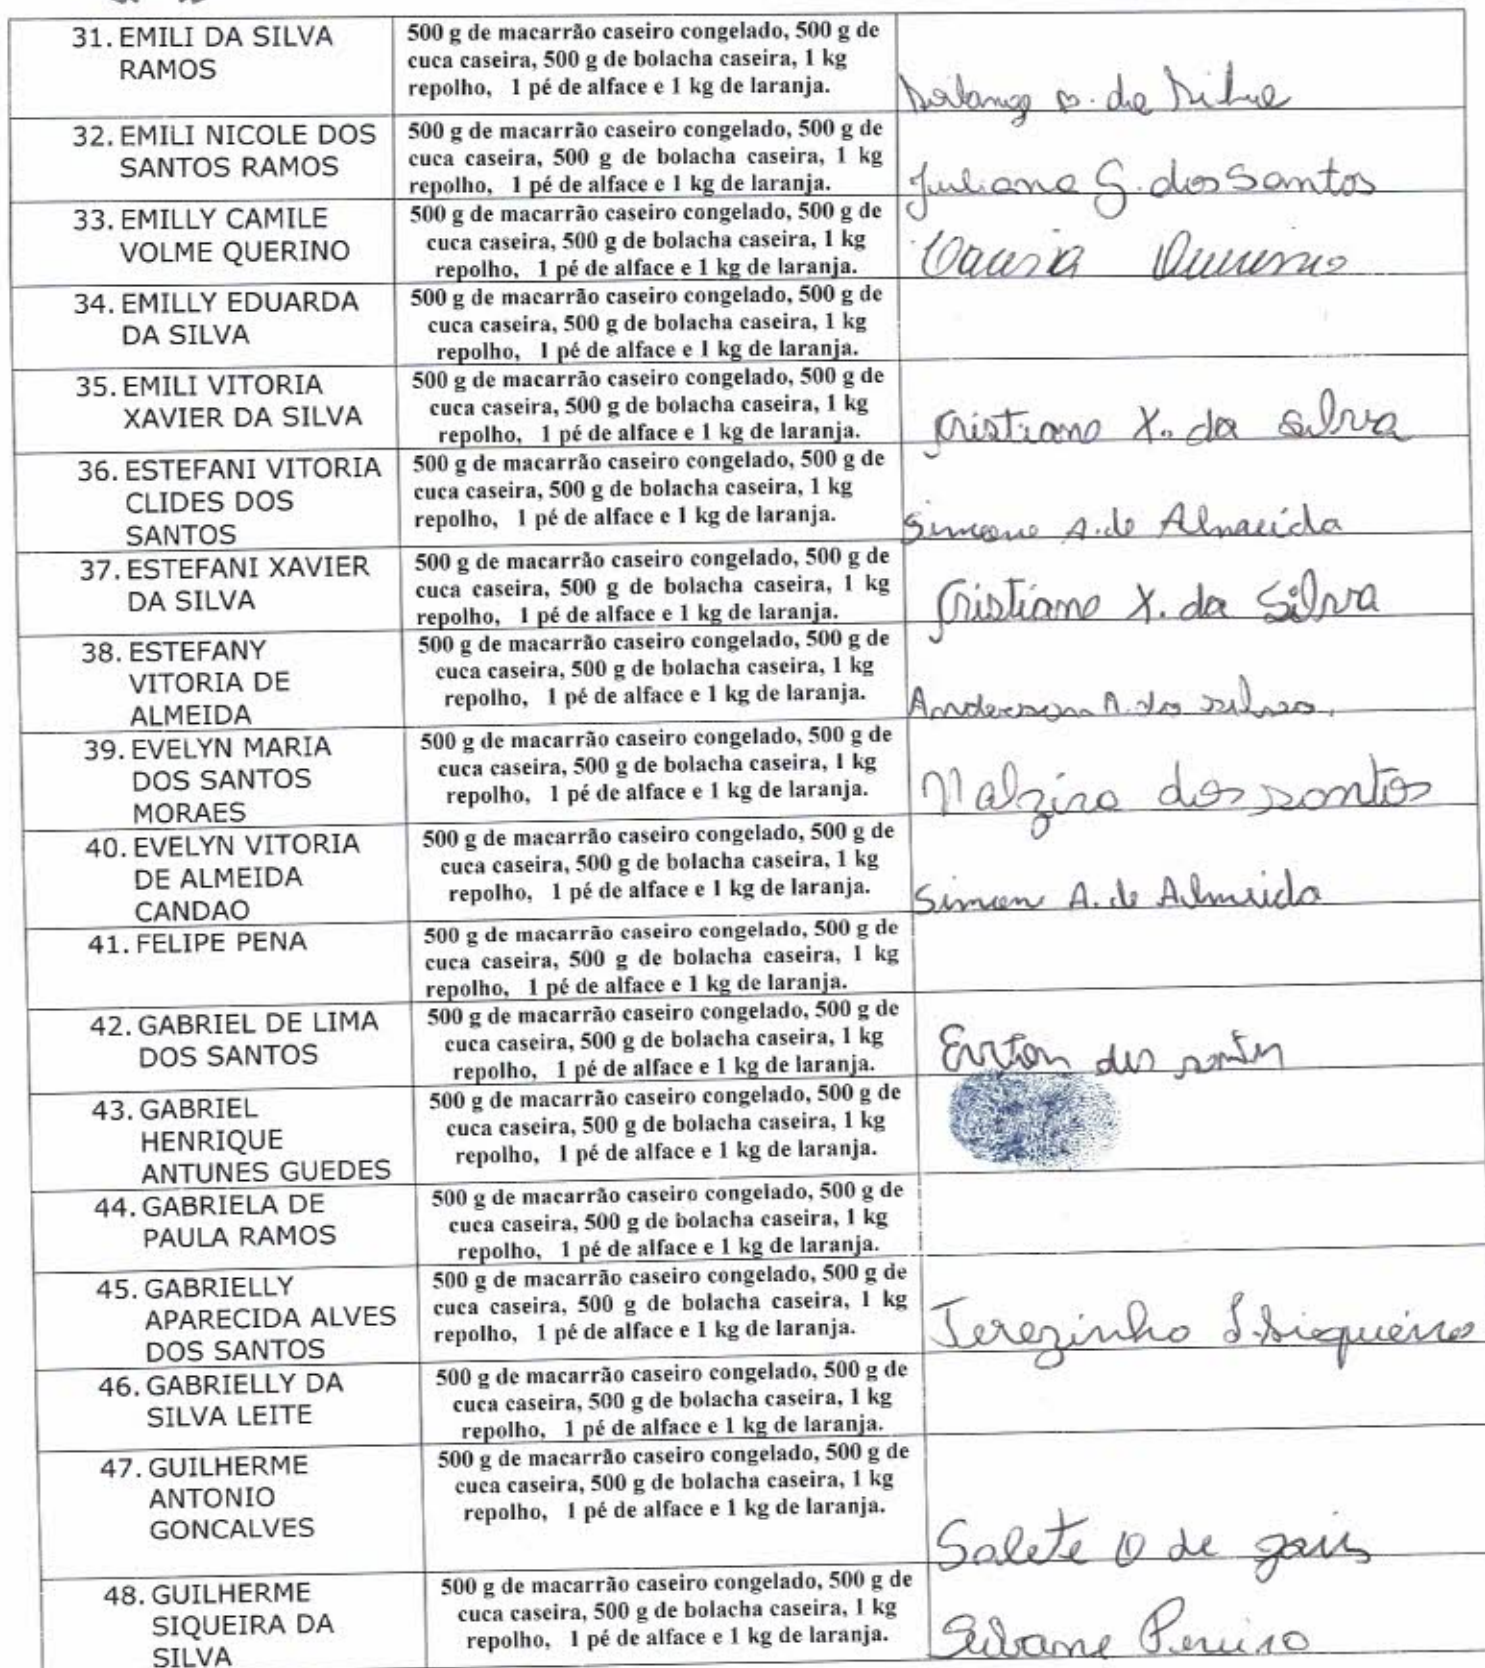 31. EMILI DA SILVA
RAMOS
500 g de macarrão caseiro congelado, 500 g de
cuca caseira, 500 g de bolacha caseira, 1 kg
repolho, 1 pé de alface e 1 kg de laranja.
32. EMILI NICOLE DOS
SANTOS RAMOS
500 g de macarrão caseiro congelado, 500 g de
cuca caseira, 500 g de bolacha caseira, 1 kg
repolho, 1 pé de alface e 1 kg de laranja.
Juliana G. dos Santos
33. EMILLY CAMILE
VOLME QUERINO
500 g de macarrão caseiro congelado, 500 g de
cuca caseira, 500 g de bolacha caseira, 1 kg
repolho, 1 pé de alface e 1 kg de laranja.
34. EMILLY EDUARDA
DA SILVA
500 g de macarrão caseiro congelado, 500 g de
cuca caseira, 500 g de bolacha caseira, 1 kg
repolho, 1 pé de alface e 1 kg de laranja.
35. EMILI VITORIA
XAVIER DA SILVA
500 g de macarrão caseiro congelado, 500 g de
cuca caseira, 500 g de bolacha caseira, 1 kg
repolho, 1 pé de alface e 1 kg de laranja.
Cristiano X. da Silva
36. ESTEFANI VITORIA
CLIDES DOS
SANTOS
500 g de macarrão caseiro congelado, 500 g de
cuca caseira, 500 g de bolacha caseira, 1 kg
repolho, 1 pé de alface e 1 kg de laranja.
Simone A. de Almeida
37. ESTEFANI XAVIER
DA SILVA
500 g de macarrão caseiro congelado, 500 g de
cuca caseira, 500 g de bolacha caseira, 1 kg
repolho, 1 pé de alface e 1 kg de laranja.
Cristiano X. da Silva
38. ESTEFANY
VITORIA DE
ALMEIDA
500 g de macarrão caseiro congelado, 500 g de
cuca caseira, 500 g de bolacha caseira, 1 kg
repolho, 1 pé de alface e 1 kg de laranja.
Anderson A. da silva.
39. EVELYN MARIA
DOS SANTOS
MORAES
500 g de macarrão caseiro congelado, 500 g de
cuca caseira, 500 g de bolacha caseira, 1 kg
repolho, 1 pé de alface e 1 kg de laranja.
Nalzira dos santos
40. EVELYN VITORIA
DE ALMEIDA
CANDAO
500 g de macarrão caseiro congelado, 500 g de
cuca caseira, 500 g de bolacha caseira, 1 kg
repolho, 1 pé de alface e 1 kg de laranja.
Simon A. de Almeida
41. FELIPE PENA
500 g de macarrão caseiro congelado, 500 g de
cuca caseira, 500 g de bolacha caseira, 1 kg
repolho, 1 pé de alface e 1 kg de laranja.
42. GABRIEL DE LIMA
DOS SANTOS
500 g de macarrão caseiro congelado, 500 g de
cuca caseira, 500 g de bolacha caseira, 1 kg
repolho, 1 pé de alface e 1 kg de laranja.
43. GABRIEL
HENRIQUE
ANTUNES GUEDES
500 g de macarrão caseiro congelado, 500 g de
cuca caseira, 500 g de bolacha caseira, 1 kg
repolho, 1 pé de alface e 1 kg de laranja.
44. GABRIELA DE
PAULA RAMOS
500 g de macarrão caseiro congelado, 500 g de
cuca caseira, 500 g de bolacha caseira, 1 kg
repolho, 1 pé de alface e 1 kg de laranja.
45. GABRIELLY
APARECIDA ALVES
DOS SANTOS
500 g de macarrão caseiro congelado, 500 g de
cuca caseira, 500 g de bolacha caseira, 1 kg
repolho, 1 pé de alface e 1 kg de laranja.
Terezinha
46. GABRIELLY DA
SILVA LEITE
500 g de macarrão caseiro congelado, 500 g de
cuca caseira, 500 g de bolacha caseira, 1 kg
repolho, 1 pé de alface e 1 kg de laranja.
47. GUILHERME
ANTONIO
GONCALVES
500 g de macarrão caseiro congelado, 500 g de
cuca caseira, 500 g de bolacha caseira, 1 kg
repolho, 1 pé de alface e 1 kg de laranja.
Salete O de
48. GUILHERME
SIQUEIRA DA
SILVA
500 g de macarrão caseiro congelado, 500 g de
cuca caseira, 500 g de bolacha caseira, 1 kg
repolho, 1 pé de alface e 1 kg de laranja.